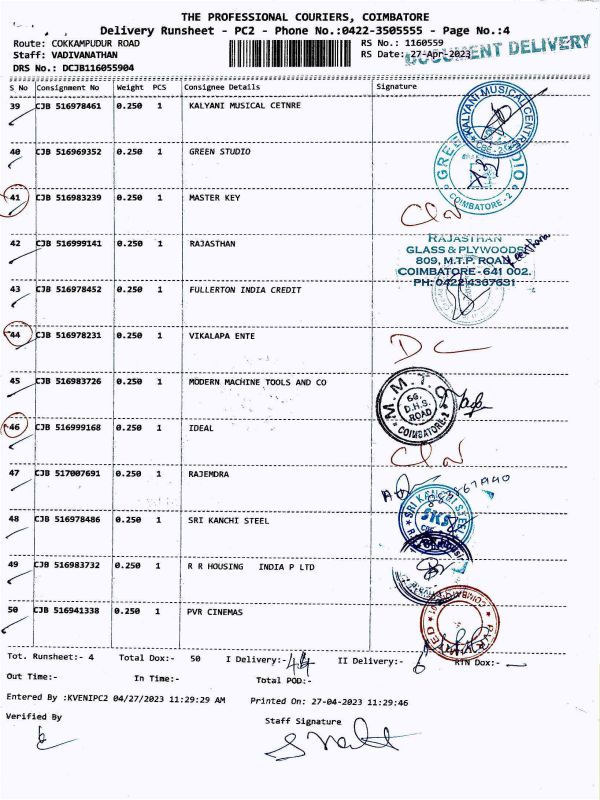 THE PROFESSIONAL COURIERS, COIMBATORE
Delivery Runsheet - PC2 - Phone No.:0422-3505555 - Page No.:4
Route: COKKAMPUDUR ROAD RS No.: 1160559
DOCUMENT DELIVERY
Staff: VADIVANATHAN RS Date: 27-Apr-2023
DRS No.: DCJB116055904
S No Consignment No Weight PCS Consignee Details Signature
39 CJB 516978461 0.250 1 KALYANI MUSICAL CETNRE
KALYANI MUSICAL CENTRE CBE-2
40 CJB 516969352 0.250 1 GREEN STUDIO
GREEN STUDIO COIMBATORE-2
41 CJB 516983239 0.250 1 MASTER KEY
42 CJB 516999141 0.250 1 RAJASTHAN
RAJASTHAN
GLASS & PLYWOODS
809, M.T.P. ROAD
COIMBATORE - 641 002.
PH: 0422 4367631
43 CJB 516978452 0.250 1 FULLERTON INDIA CREDIT
44 CJB 516978231 0.250 1 VIKALAPA ENTE
DC
45 CJB 516983726 0.250 1 MODERN MACHINE TOOLS AND CO
M. M. T. C
56,
D.H.S.
ROAD
COIMBATORE-2
46 CJB 516999168 0.250 1 IDEAL
47 CJB 517007691 0.250 1 RAJEMDRA
48 CJB 516978486 0.250 1 SRI KANCHI STEEL
SRI KANCHI STEEL
SKS
49 CJB 516983732 0.250 1 R R HOUSING INDIA P LTD
50 CJB 516941338 0.250 1 PVR CINEMAS
Tot. Runsheet:- 4 Total Dox:- 50 I Delivery:- 44 II Delivery:- 6 RTN Dox:- —
Out Time:- In Time:- Total POD:-
Entered By :KVENIPC2 04/27/2023 11:29:29 AM Printed On: 27-04-2023 11:29:46
Verified By Staff Signature